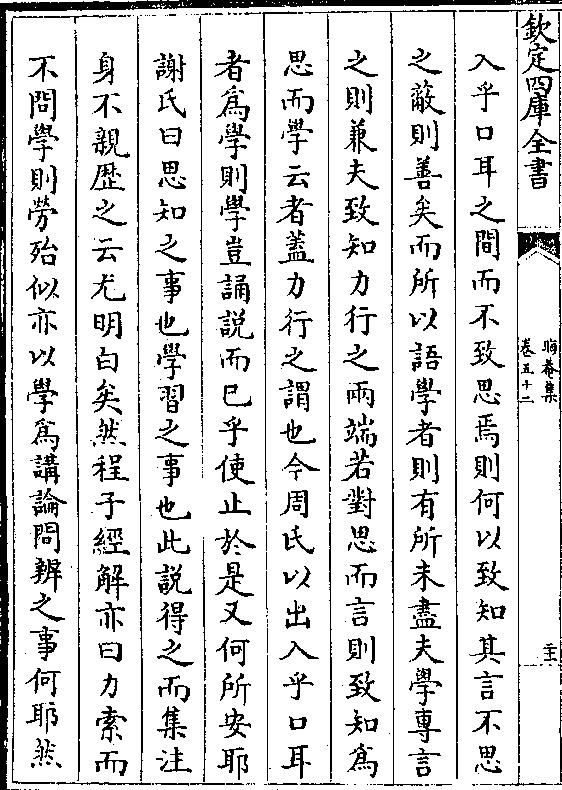 欽定四庫全書
晦菴集
卷五十二
入乎口耳之間而不致思焉則何以致知其言不思
之蔽則善矣而所以語學者則有所未盡夫學專言
之則兼夫致知力行之兩端若對思而言則致知爲
思而學云者葢力行之謂也今周氏以出入乎口耳
者爲學則學豈誦說而已乎使止於是又何所安耶
謝氏曰思知之事也學習之事也此説得之而集注
身不親歴之云尤明白矣然程子經解亦曰力索而
不問學則勞殆似亦以學爲講論問辨之事何耶然